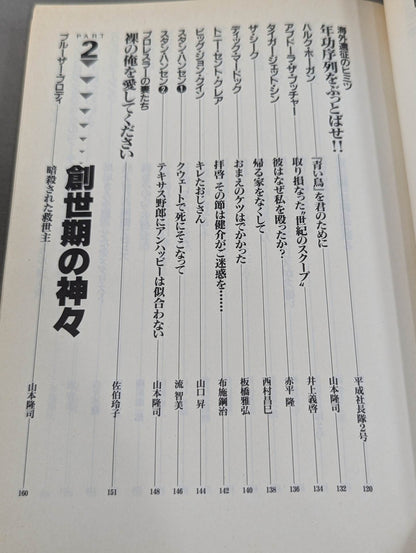 海外遠征のヒミツ
年功序列をぶっとばせ!! 平成社長隊2号 120
ハルク・ホーガン 「青い鳥」を君のために 山本隆司 132
アブドーラ・ザ・ブッチャー 取り損なった“世紀のスクープ” 井上義啓 134
タイガー・ジェット・シン 彼はなぜ私を殴ったか? 赤平 隆 136
ザ・シーク 帰る家をなくして 西村昌巳 138
ディック・マードック おまえのケツはでかかった 板橋雅弘 140
トニー・セント・クレア 拝啓 その節は健介がご迷惑を…… 布施鋼治 142
ビッグ・ジョン・クイン キレたおじさん 山口 昇 144
スタン・ハンセン❶ クウェートで死にそこなって 流 智美 146
スタン・ハンセン❷ テキサス野郎にアンハッピーは似合わない 山本隆司 148
プロレスラーの妻たち
裸の俺を愛してください 佐伯玲子 151
PART
2
創世期の神々
ブルーザー・ブロディ 暗殺された救世主 山本隆司 160